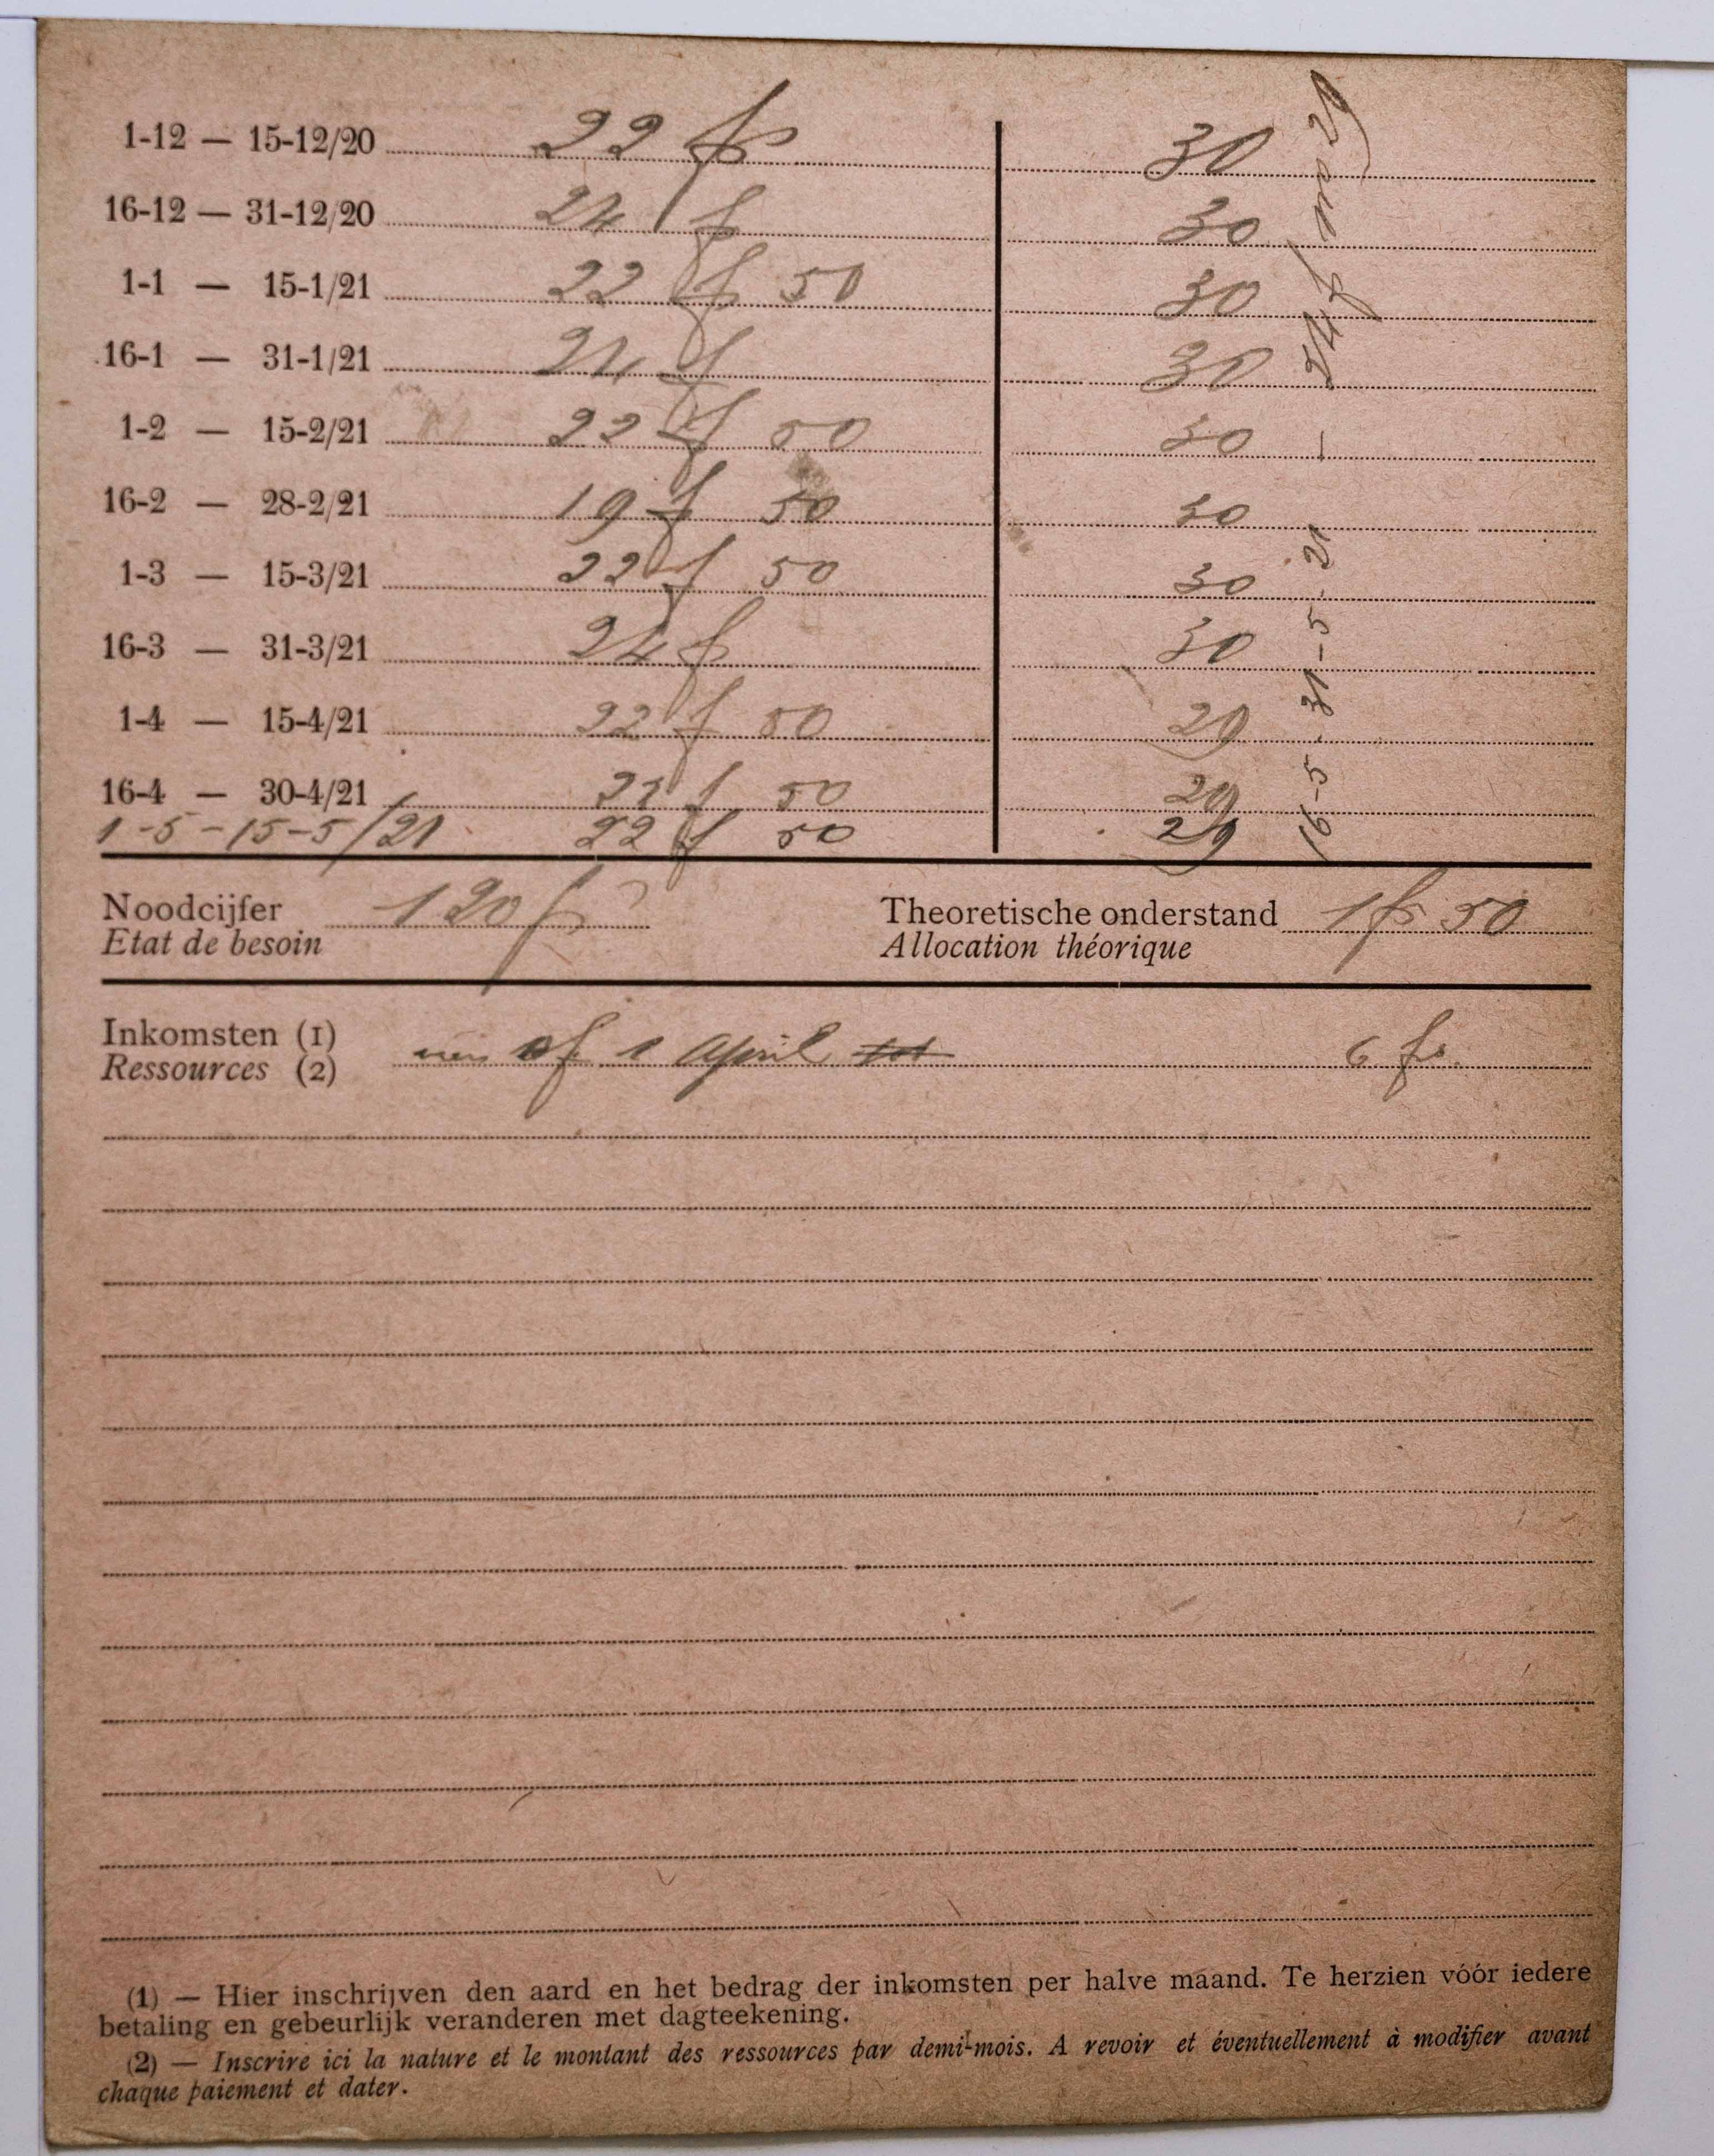 1-12 — 15-12/20 22 fr 30
16-12 — 31-12/20 24 f 30
1-1 — 15-1/21 22 f 50 30
16-1 — 31-1/21 24 f 30
1-2 — 15-2/21 22 f 50 30
16-2 — 28-2/21 19 f 50 30
1-3 — 15-3/21 22 f 50 30
16-3 — 31-3/21 24 f 30
1-4 — 15-4/21 22 f 50 29
16-4 — 30-4/21 22 f 50 29
1-5-15-5/21 22 f 50 29
16-5 - 31-5-21 — 24 f no 29
Noodcijfer 120 fr Theoretische onderstand 1 fr 50
Etat de besoin Allocation théorique
Inkomsten (1) af 1 April tot 6 fr.
Ressources (2)
(1) — Hier inschrijven den aard en het bedrag der inkomsten per halve maand. Te herzien vóór iedere
betaling en gebeurlijk veranderen met dagteekening.
(2) — Inscrire ici la nature et le montant des ressources par demi-mois. A revoir et éventuellement à modifier avant
chaque paiement et dater.